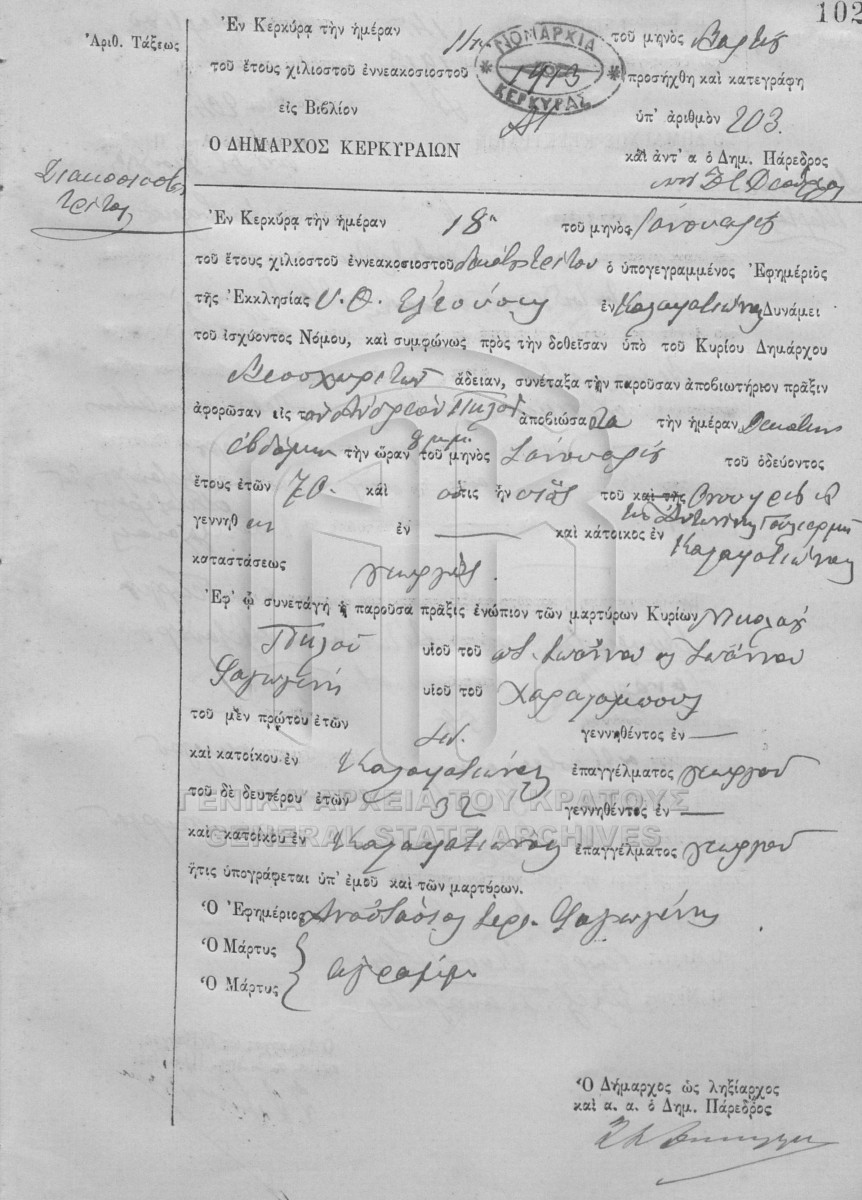 102
Ἀριθ. Τάξεως
Ἐν Κερκύρᾳ τὴν ἡμέραν 11ην τοῦ μηνὸς
τοῦ ἔτους χιλιοστοῦ ἐννεακοσιοστοῦ 1913 προσήχθη καὶ κατεγράφη
ΝΟΜΑΡΧΙΑ ΚΕΡΚΥΡΑΣ
εἰς Βιβλίον ὑπ' ἀριθμὸν 203.
Ο ΔΗΜΑΡΧΟΣ ΚΕΡΚΥΡΑΙΩΝ
καὶ ἀντ' α ὁ Δημ. Πάρεδρος
Διακοσιοστὸν
τρίτον
Ἐν Κερκύρᾳ τὴν ἡμέραν 18η τοῦ μηνὸς Ἰανουαρίου
τοῦ ἔτους χιλιοστοῦ ἐννεακοσιοστοῦ δεκάτου τρίτου ὁ ὑπογεγραμμένος Ἐφημέριος
τῆς Ἐκκλησίας Υ. Θ. Ἐλεούσης ἐν Καλαφατιώνας Δυνάμει
τοῦ ἰσχύοντος Νόμου, καὶ συμφώνως πρὸς τὴν δοθεῖσαν ὑπὸ τοῦ Κυρίου Δημάρχου
ἄδειαν, συνέταξα τὴν παροῦσαν ἀποβιωτήριον πρᾶξιν
ἀφορῶσαν εἰς τὸν Ἀνδρέαν Πηλὸν ἀποβιώσαντα τὴν ἡμέραν Δεκάτην
ἑβδόμην τὴν ὥραν 8 π.μ. τοῦ μηνὸς Ἰανουαρίου τοῦ ὁδεύοντος
ἔτους ἐτῶν 70. καὶ ὅστις ἦν υἱὸς τοῦ καὶ τῆς
γεννηθ ἐν — καὶ κάτοικος ἐν Καλαφατιώνας
καταστάσεως γεωργὸς.
Ἐφ' ᾧ συνετάγη ἡ παροῦσα πρᾶξις ἐνώπιον τῶν μαρτύρων Κυρίων Νικολάου
Πηλοῦ υἱοῦ τοῦ ποτ. Ἰωάννου κ Ἰωάννου
Φαγωγένη υἱοῦ τοῦ Χαραλάμπους
τοῦ μὲν πρώτου ἐτῶν γεννηθέντος ἐν —
καὶ κατοίκου ἐν Καλαφατιώνας ἐπαγγέλματος γεωργοῦ
τοῦ δὲ δευτέρου ἐτῶν 32 γεννηθέντος ἐν —
ΓΕΝΙΚΑ ΑΡΧΕΙΑ ΤΟΥ ΚΡΑΤΟΥΣ
GENERAL STATE ARCHIVES
καὶ κατοίκου ἐν Καλαφατιώνας ἐπαγγέλματος γεωργοῦ
ἥτις ὑπογράφεται ὑπ' ἐμοῦ καὶ τῶν μαρτύρων.
Ὁ Ἐφημέριος Ἀναστάσιος Ἱερ. Φαγωγένης
Ὁ Μάρτυς
Ὁ Μάρτυς
ἀγράμμ
Ὁ Δήμαρχος ὡς ληξίαρχος
καὶ α. α. ὁ Δημ. Πάρεδρος